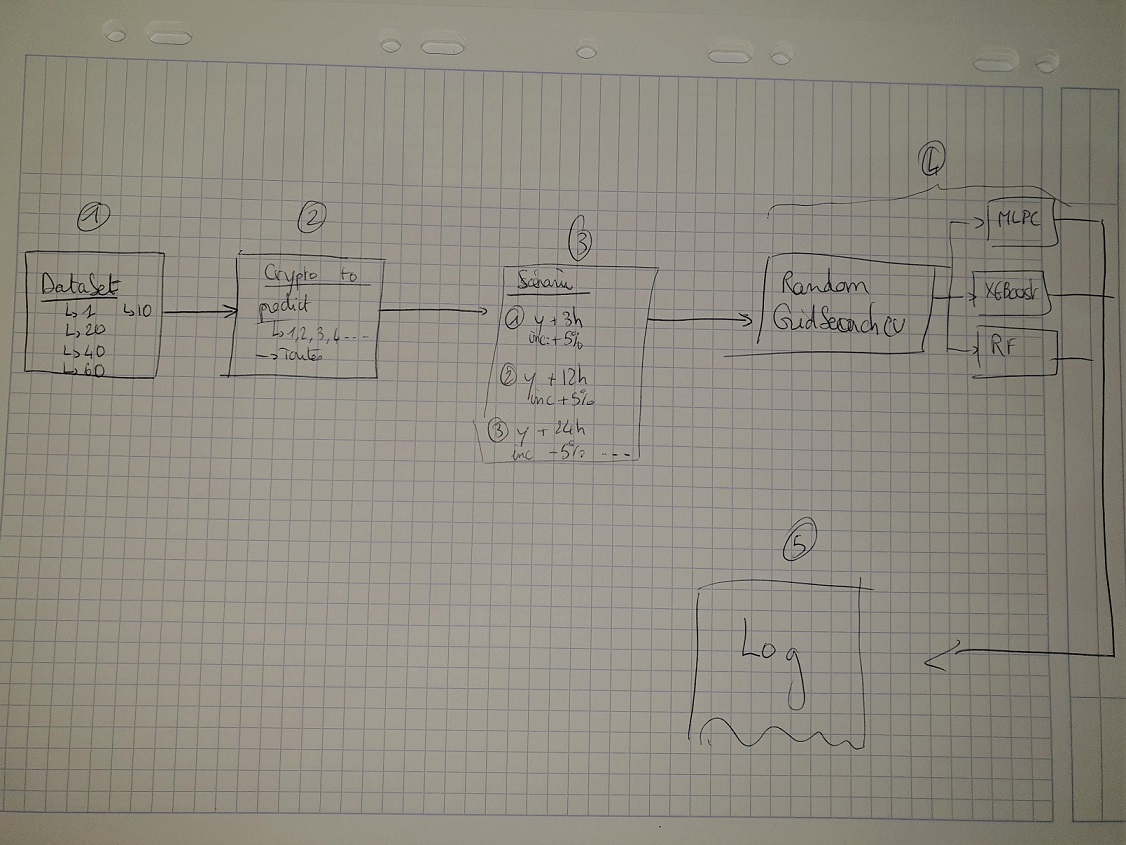 1
DataSet
↳ 1 ↳ 10
↳ 20
↳ 40
↳ 60
2
Crypto to
predict
↳ 1, 2, 3, 4 ....
→ Toutes
3
① y + 3h
inc: + 5%
② y + 12h
inc + 5%
③ y + 24h
inc - 5% ---
4
Random
GridSearchCV
MLPC
XGBoost
RF
5
Log